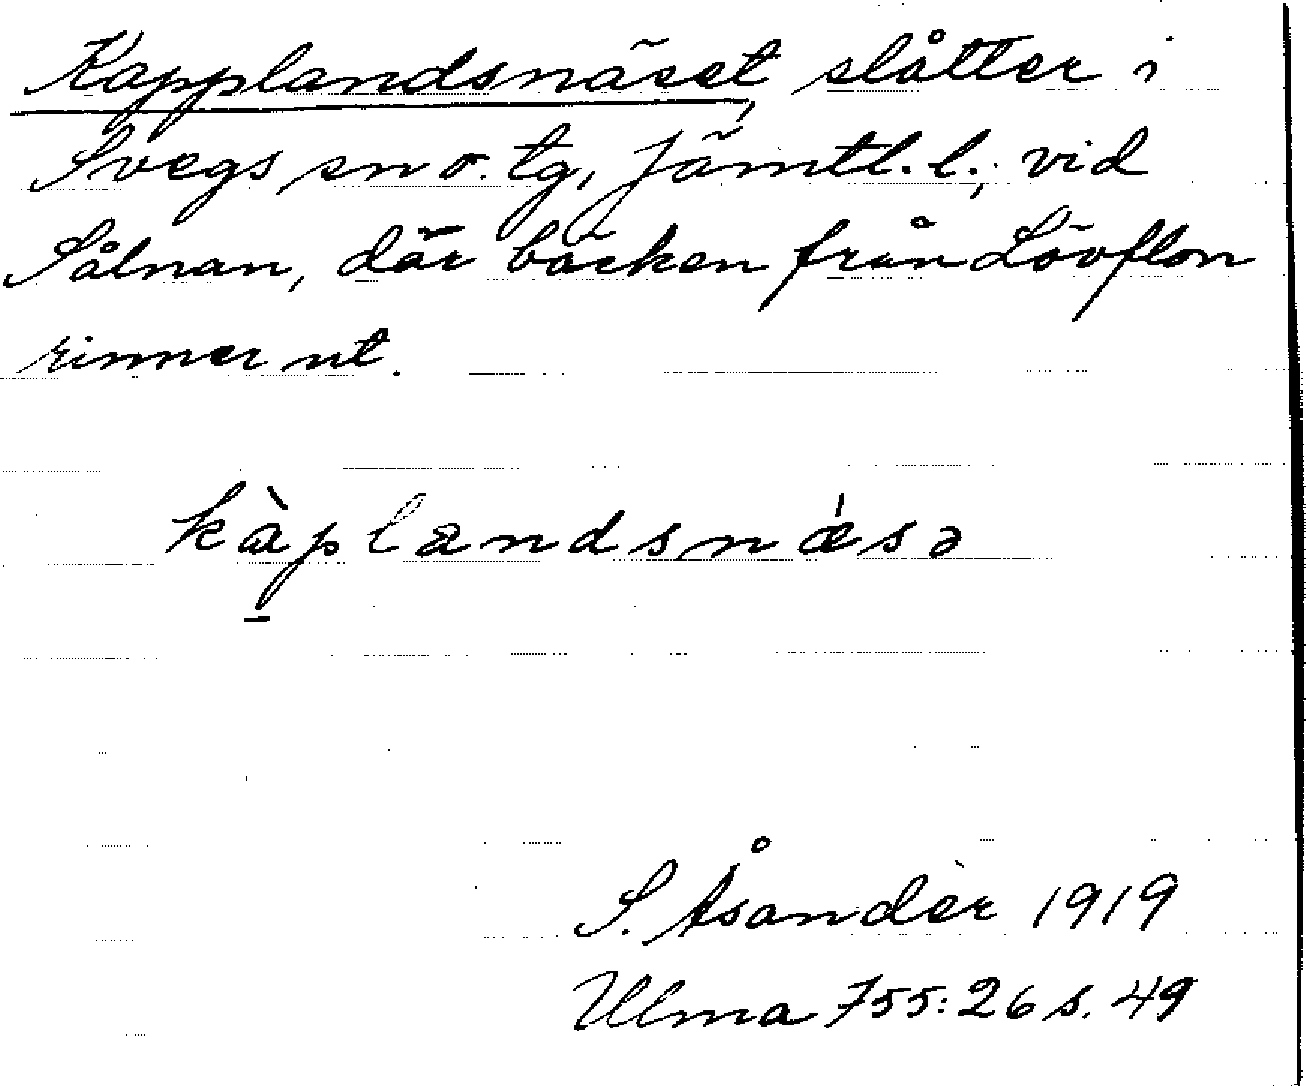 Kapplandsnäset, slåtter i
Svegs sn o. tg, Jämtl. l.; vid
Sålnan, där bäcken från Lövflon
rinner ut.
kàplandsnǽsə
S. Åsandèr 1919
Ulma 755:26 s. 49